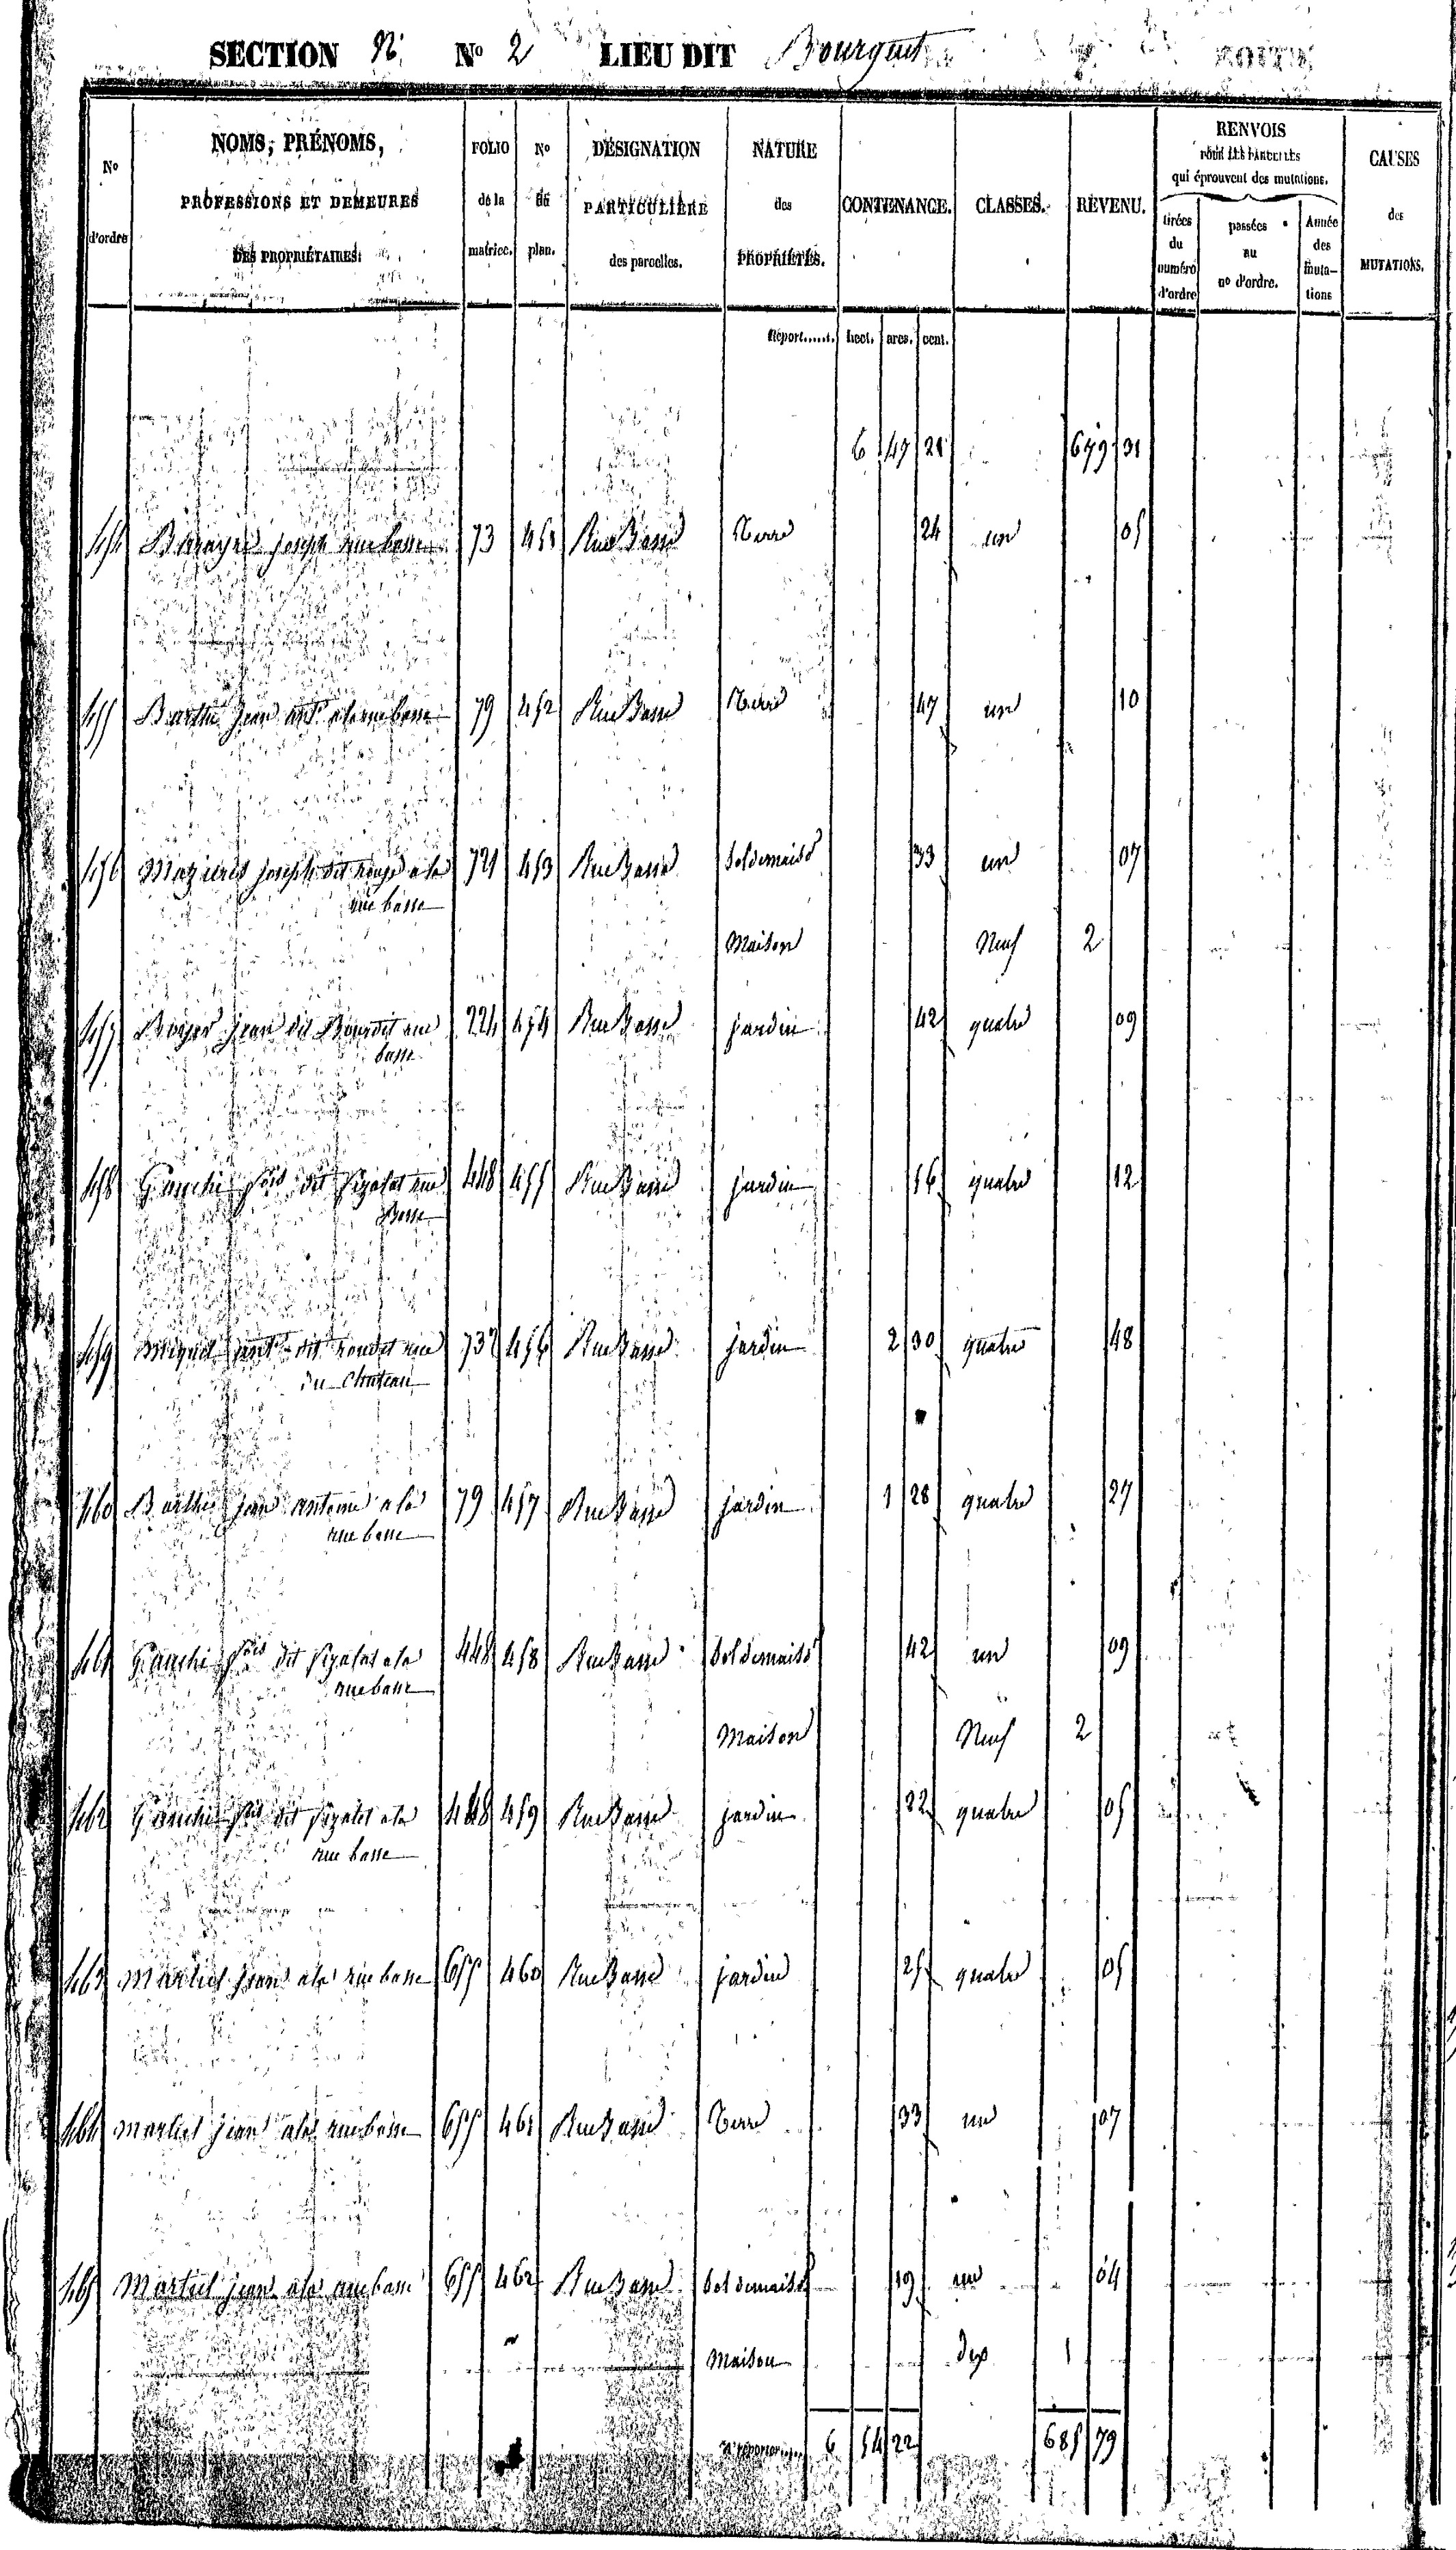 SECTION N. No 2 LIEU DIT Bourgeut
No d'ordre
NOMS, PRÉNOMS, PROFESSIONS ET DEMEURES DES PROPRIÉTAIRES.
FOLIO de la matrice.
No du plan.
DÉSIGNATION PARTICULIÈRE des parcelles.
NATURE des PROPRIÉTÉS.
CONTENANCE.
CLASSES.
REVENU.
RENVOIS POUR LES PARCELLES qui éprouvent des mutations.
tirées du numéro d'ordre
passées au no d'ordre.
Année des mutations
CAUSES des MUTATIONS.
Report...... hect. ares. cent.
6 47 21 679 31
454 joseph rue basse 73 451 Rue Basse Terre 24 un 05
455 Barthe Jean ant. a la rue basse 79 452 Rue Basse Terre 47 un 10
456 Mazieres joseph dit a la 721 453 Rue Basse Sol de maison 33 un 07
rue basse
Maison Neuf 2
457 Boyer jean dit rue 224 454 Rue Basse jardin 42 quatre 09
basse
458 Gauchi fois dit Pigalat rue 448 455 Rue Basse jardin 56 quatre 12
Basse
459 Miquel ant. dit rue 737 456 Rue Basse jardin 2 30 quatre 48
du Chateau
460 Barthe jean antoine a la 79 457 Rue Basse jardin 1 28 quatre 27
rue basse
461 Gauchi fois dit Pigalat a la 448 458 Rue Basse Sol de maison 42 un 09
rue basse
Maison Neuf 2
462 Gauchi fois dit Pigalat a la 448 459 Rue Basse jardin 22 quatre 05
rue basse
463 Martiel Jean a la rue basse 655 460 Rue Basse jardin 25 quatre 05
464 Martiel Jean a la rue basse 655 461 Rue Basse Terre 33 un 07
465 Martiel jean a la rue basse 655 462 Rue Basse Sol de maison 19 un 04
Maison dix 1
A reporter 6 54 22 685 79